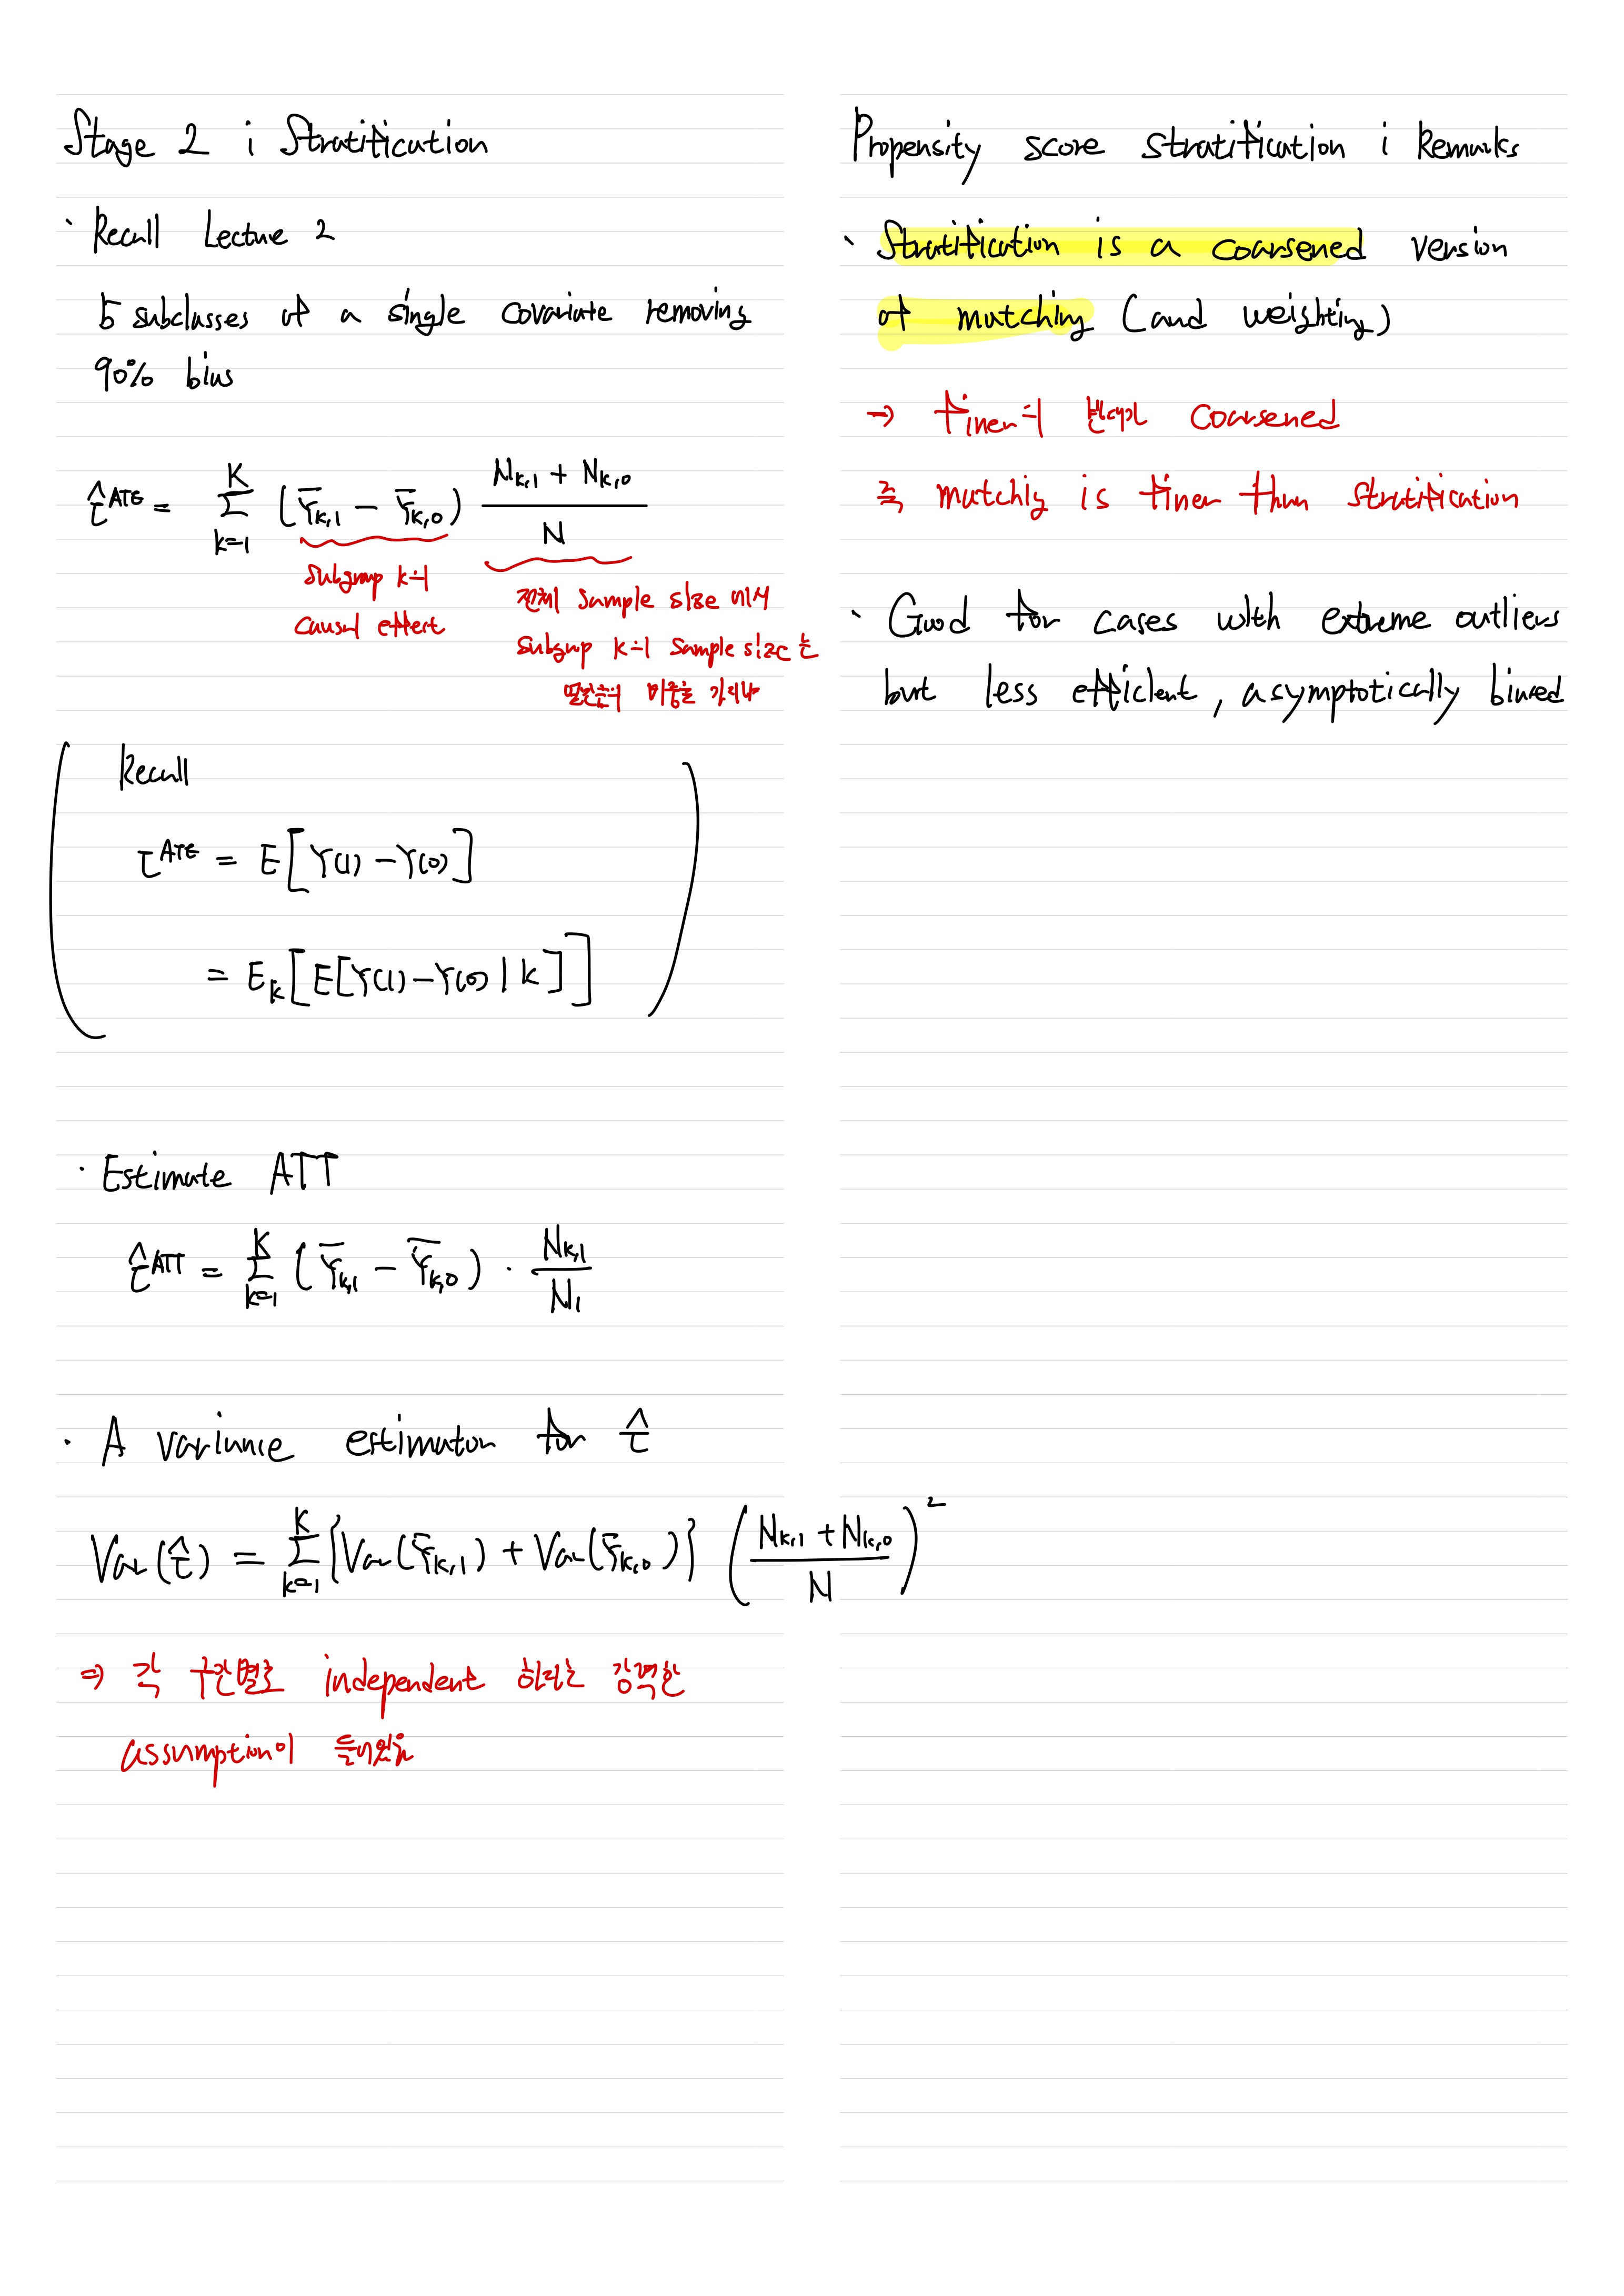 Stage 2 : Stratification
· Recall Lecture 2
5 subclasses of a single covariate removing
90% bias
τ̂^ATE = Σ_{k=1}^{K} (Ȳ_{k,1} − Ȳ_{k,0}) (N_{k,1} + N_{k,0}) / N
Subgroup k의
causal effect
전체 sample size 에서
subgroup k의 sample size 는
비중을
Recall
τ^ATE = E[Y(1) − Y(0)]
= E_k[E[Y(1) − Y(0) | k]]
· Estimate ATT
τ̂^ATT = Σ_{k=1}^{K} (Ȳ_{k,1} − Ȳ_{k,0}) · N_{k,1} / N_1
· A variance estimator for τ̂
Var(τ̂) = Σ_{k=1}^{K} {Var(Ȳ_{k,1}) + Var(Ȳ_{k,0})} ((N_{k,1} + N_{k,0}) / N)^2
⇒ 각 구간별로 independent 하다는 강력한
assumption이 들어있음
Propensity score stratification : Remarks
· Stratification is a coarsened version
of matching (and weighting)
→ finer의 반대가 coarsened
즉 matchig is finer than stratification
· Good for cases with extreme outliers
but less efficient, asymptotically biased